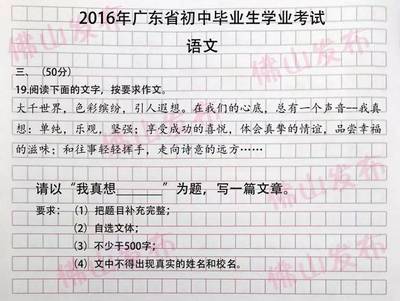 2016年广东省初中毕业生学业考试
语文
三、（50分）
19.阅读下面的文字，按要求作文。
大千世界，色彩缤纷，引人遐想。在我们的心底，总有一个声音--我真
想：单纯，乐观，坚强；享受成功的喜悦，体会真挚的情谊，品尝幸福
的滋味；和往事轻轻挥手，走向诗意的远方……
请以“我真想______”为题，写一篇文章。
要求：（1）把题目补充完整；
（2）自选文体；
（3）不少于500字；
（4）文中不得出现真实的姓名和校名。
佛山发布
佛山发布
佛山发布
佛山发布